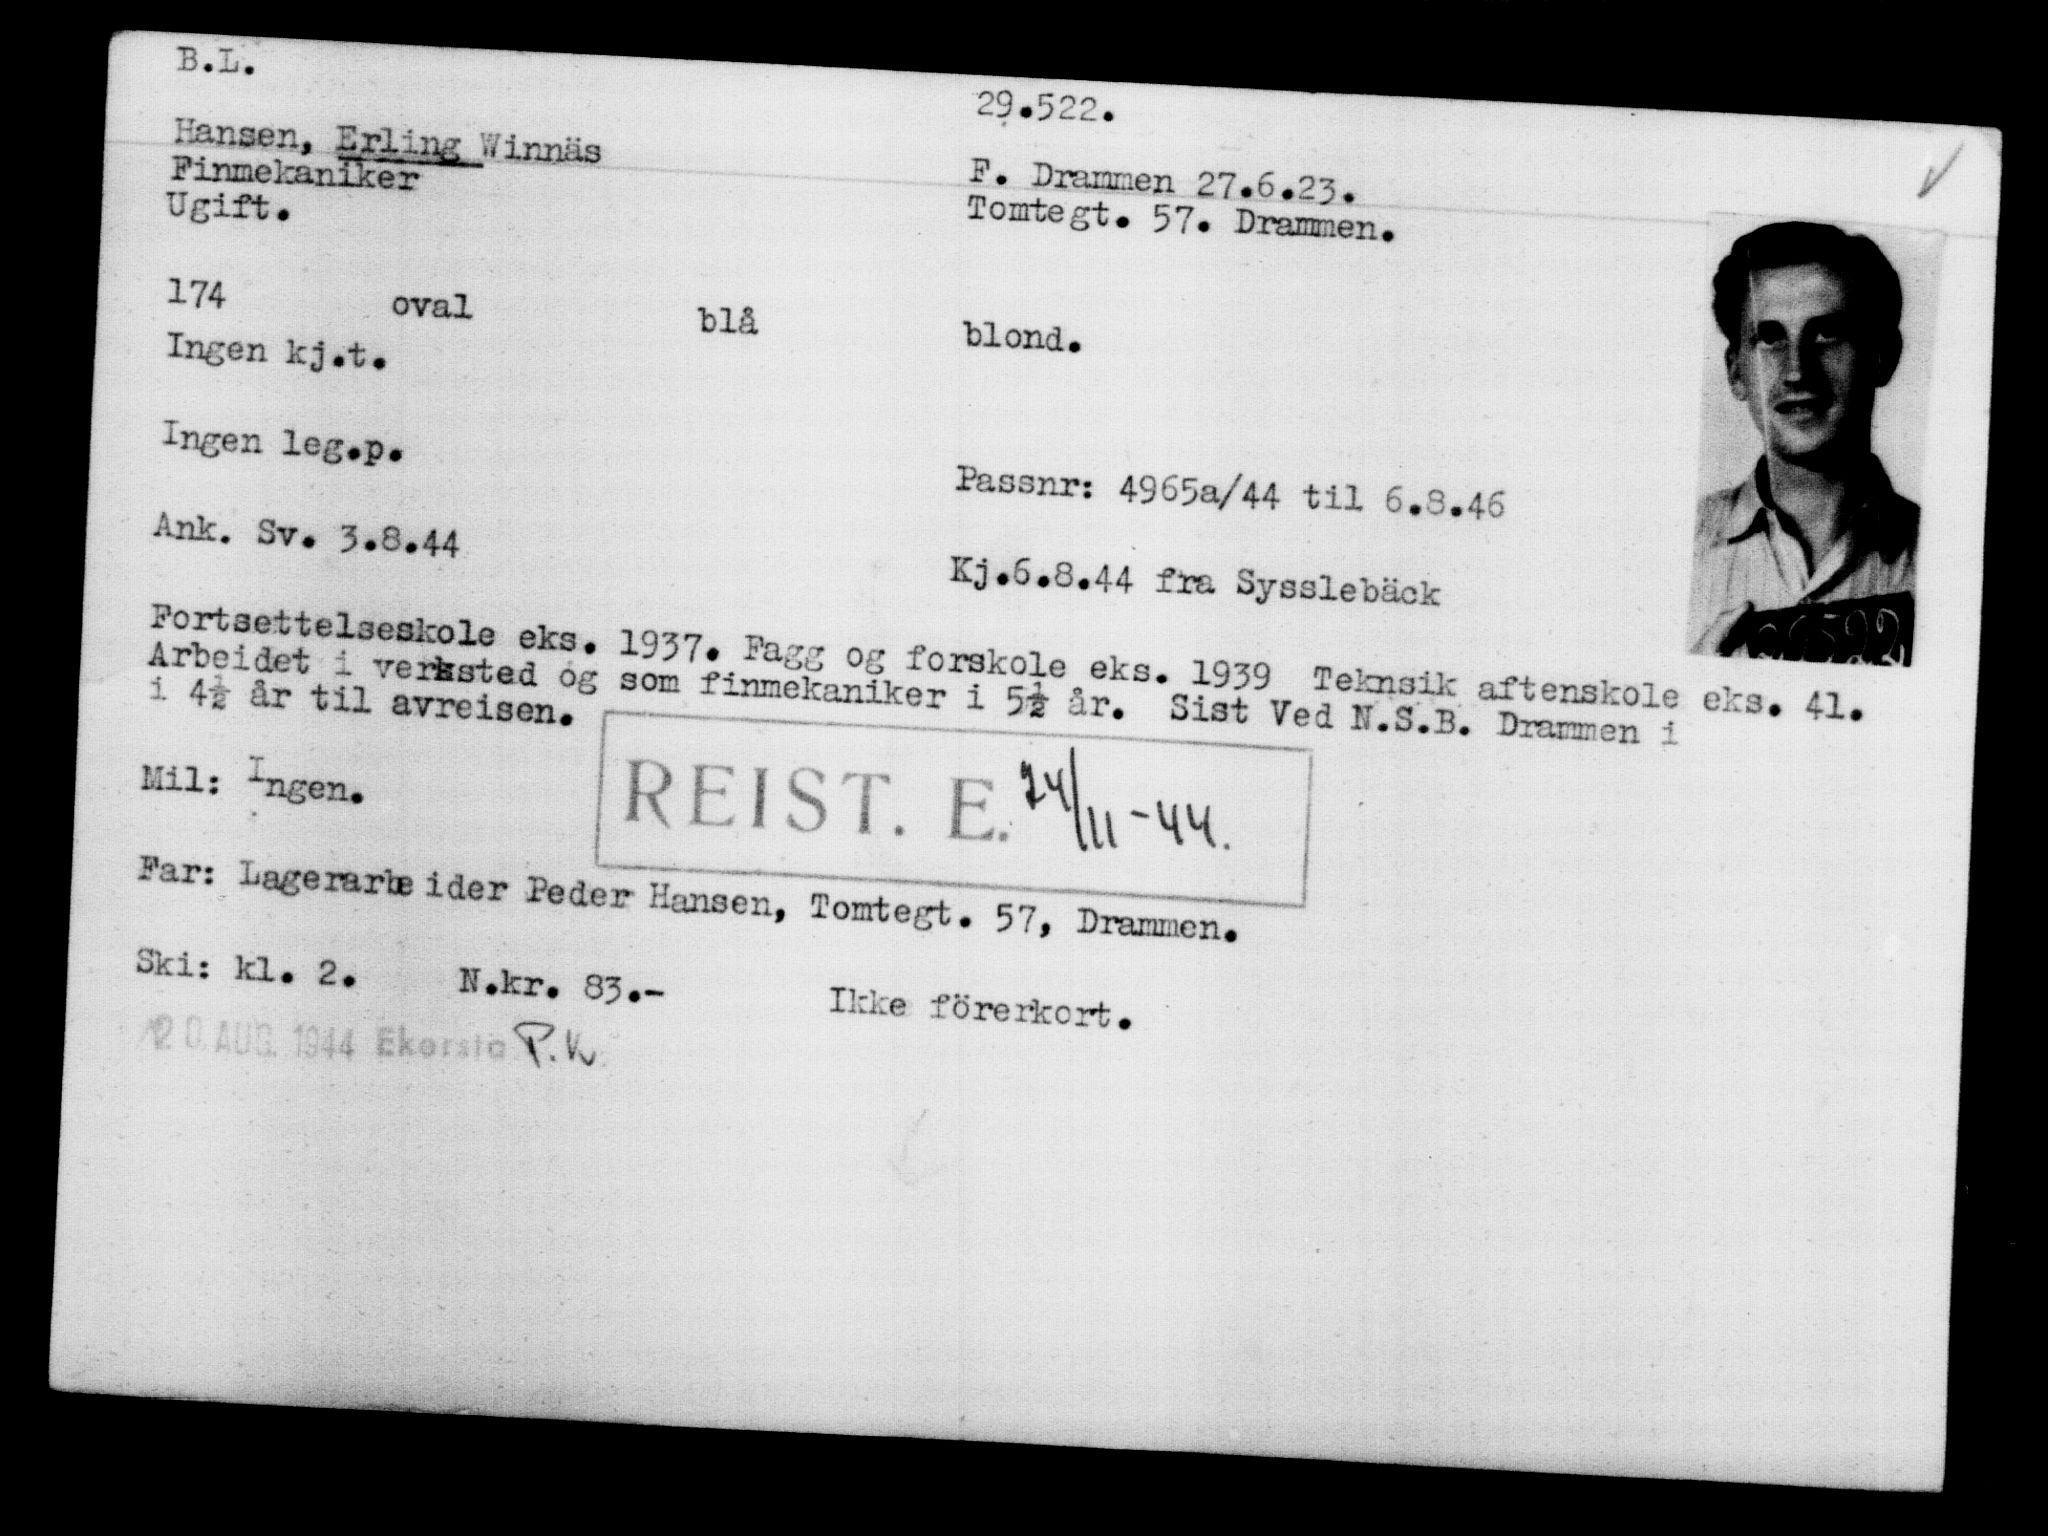 B.L.
29.522.
Hansen, Erling Winnäs
F. Drammen 27.6.23.
Finmekaniker
Tomtegt. 57. Drammen.
Ugift.
174 oval blå blond.
Ingen kj.t.
Ingen leg.p.
Passnr: 4965a/44 til 6.8.46
Ank. Sv. 3.8.44
Kj.6.8.44 fra Sysslebäck
Fortsettelseskole eks. 1937. Fagg og forskole eks. 1939 Teknsik aftenskole eks. 41.
Arbeidet i verksted og som finmekaniker i 5½ år. Sist Ved N.S.B. Drammen i
i 4½ år til avreisen.
REIST. E. 24/11-44.
Mil: Ingen.
Far: Lagerarbeider Peder Hansen, Tomtegt. 57, Drammen.
Ski: kl. 2. N.kr. 83.- Ikke förerkort.
20 AUG. 1944 Ekorsla P.V.